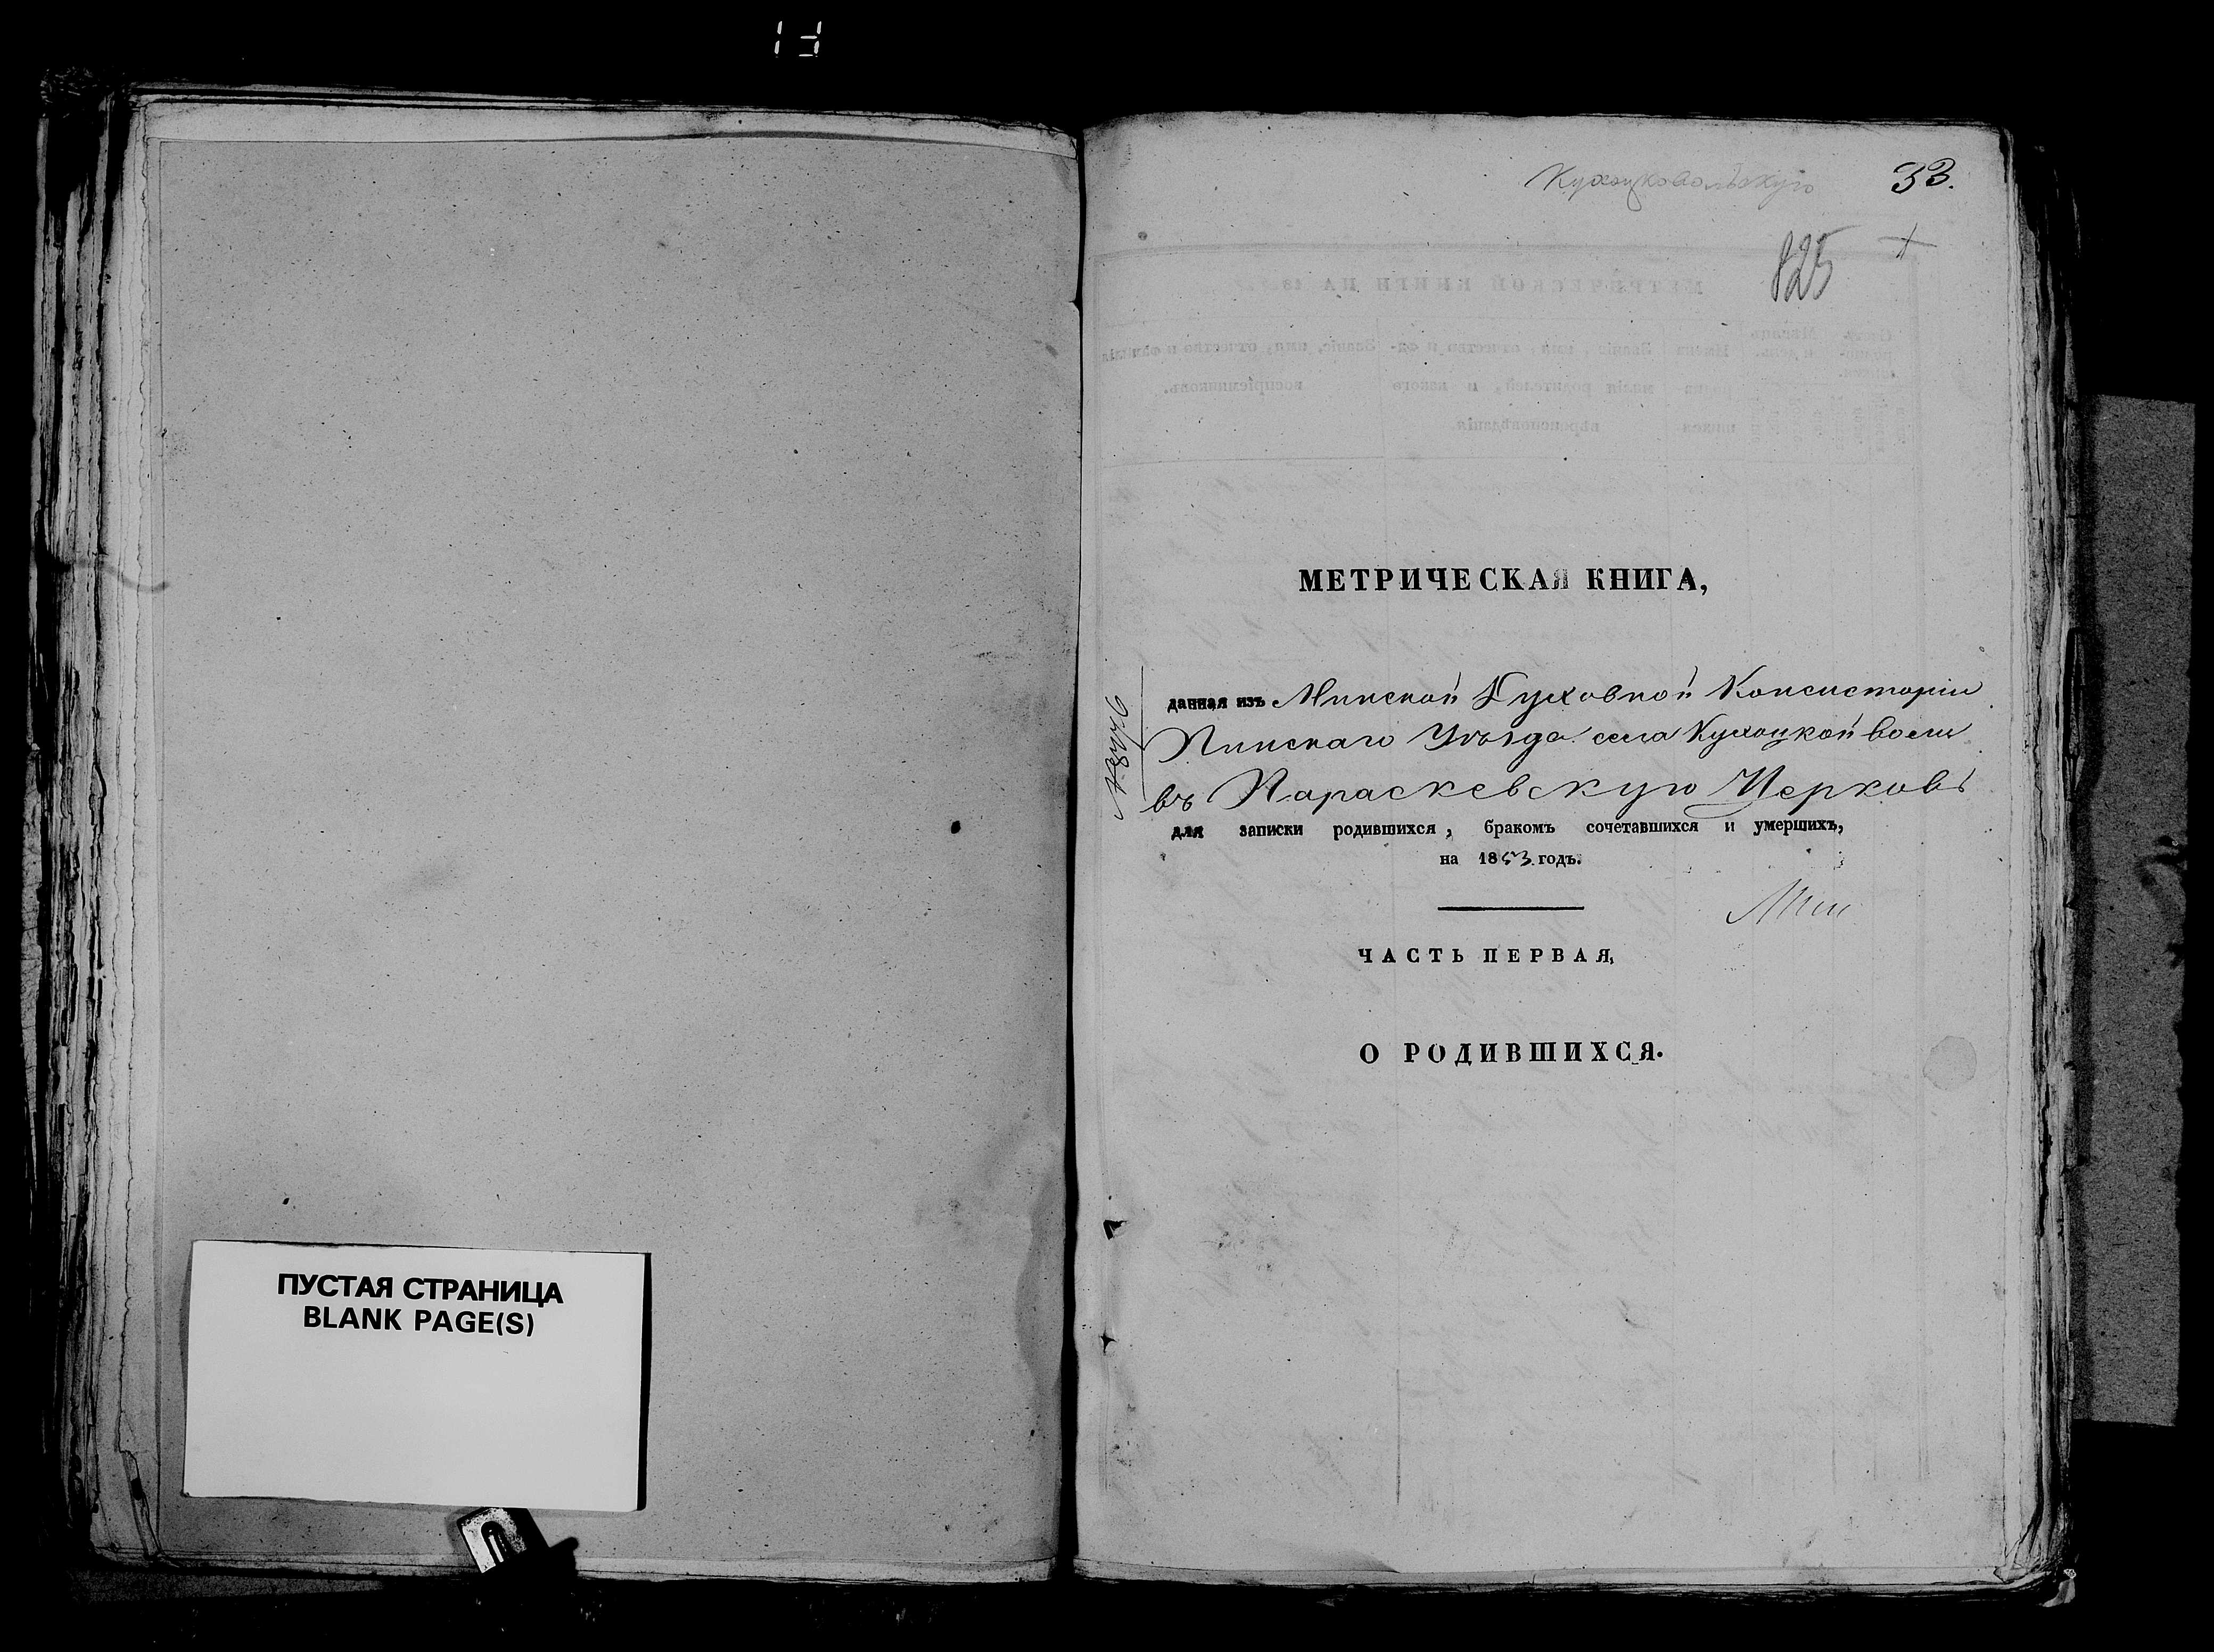 ПУСТАЯ СТРАНИЦА
BLANK PAGE(S)
33.
825
МЕТРИЧЕСКАЯ КНИГА,
данная изъ Минской Духовной Консисторіи
Пинскаго Уѣзда села Кухоцкой воли
въ Параскевскую Церковь
для записки родившихся, бракомъ сочетавшихся и умершихъ,
на 1853 годъ.
ЧАСТЬ ПЕРВАЯ,
О РОДИВШИХСЯ.